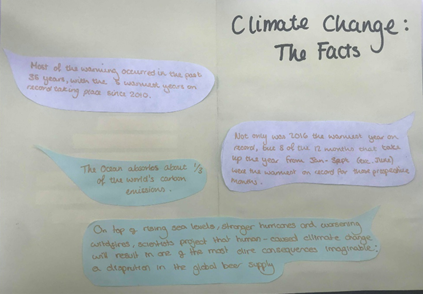 Climate Change:
The Facts
Most of the warming occurred in the past
35 years, with the 5 warmest years on
record taking place since 2010.
Not only was 2016 the warmest year on
record, but 8 of the 12 months that make
up the year from Jan - Sept (exc. June)
were the warmest on record for those respective
months.
The Ocean absorbs about 1/3
of the world's carbon
emissions.
On top of rising sea levels, stronger hurricanes and worsening
wildfires, scientists project that human-caused climate change
will result in one of the most dire consequences imaginable:
a disruption in the global beer supply